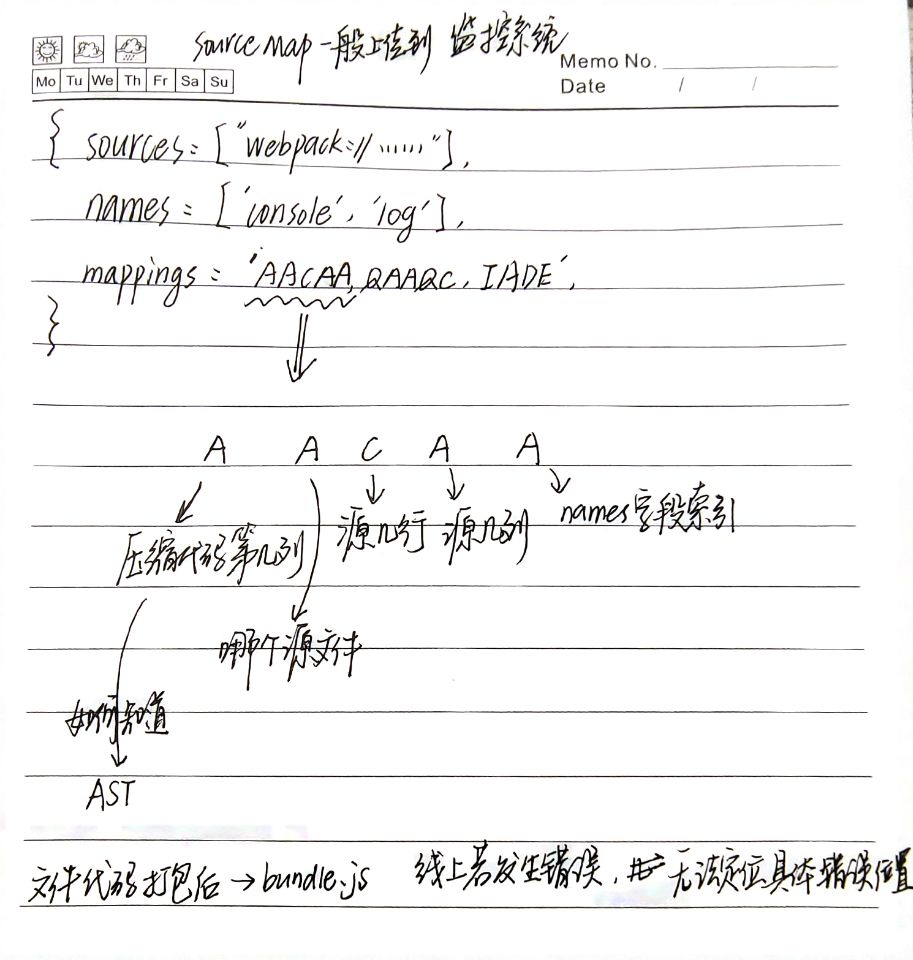 source map 一般上传到 监控系统
Memo No.
Mo Tu We Th Fr Sa Su
Date / /
{ sources: ["webpack:// ......"],
names: ['console', 'log'],
mappings: 'AACAA,QAAQC,IADE',
}
A A C A A
压缩代码第几列 源几行 源几列 names字段索引
哪个源文件
如何知道
AST
文件代码打包后 → bundle.js 线上若发生错误, 无法定位具体错误位置